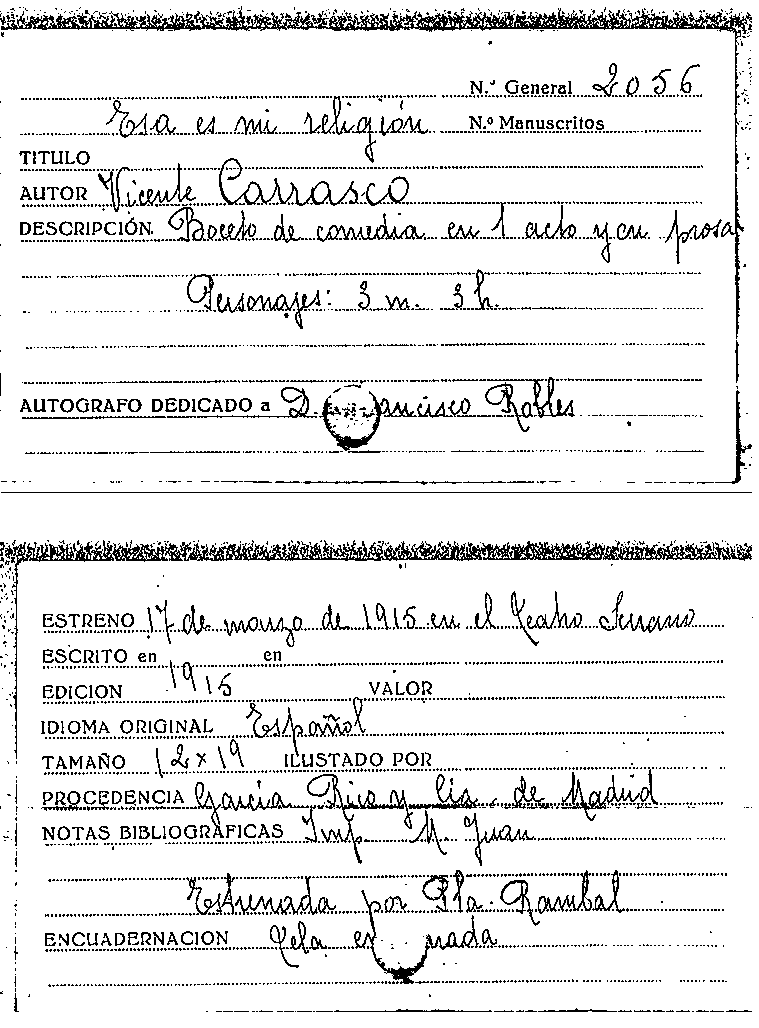 N.º General 2056
Esa es mi religión N.º Manuscritos
TITULO
AUTOR Vicente Carrasco
DESCRIPCIÓN Boceto de comedia en 1 acto y en prosa
Personajes: 3 m. 3 h.
AUTOGRAFO DEDICADO a D. Francisco Robles
ESTRENO 17 de marzo de 1915 en el Teatro Serrano
ESCRITO en en
EDICION 1915 VALOR
IDIOMA ORIGINAL Español
TAMAÑO 12 x 19 ILUSTADO POR
PROCEDENCIA García Rico y Cia. de Madrid
NOTAS BIBLIOGRAFICAS Imp. M. Juan
Estrenada por Rambal
ENCUADERNACION Tela